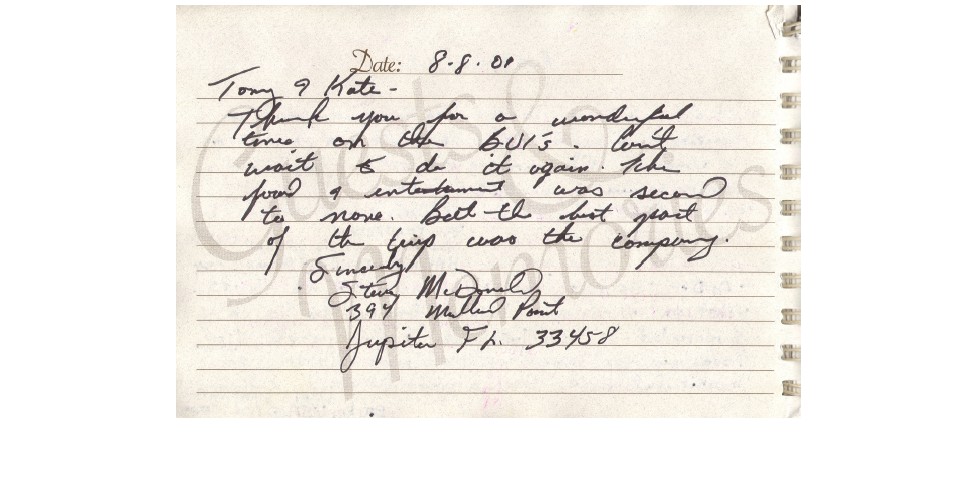 Guests & Memories
Date: 8.8.01
Tony & Kate -
Thank you for a wonderful
time on the BVI's. Can't
wait to do it again. The
food & entertainment was second
to none. But the best part
of the trip was the company.
Sincerely
Steve McDonald
394 Point
Jupiter FL. 33458